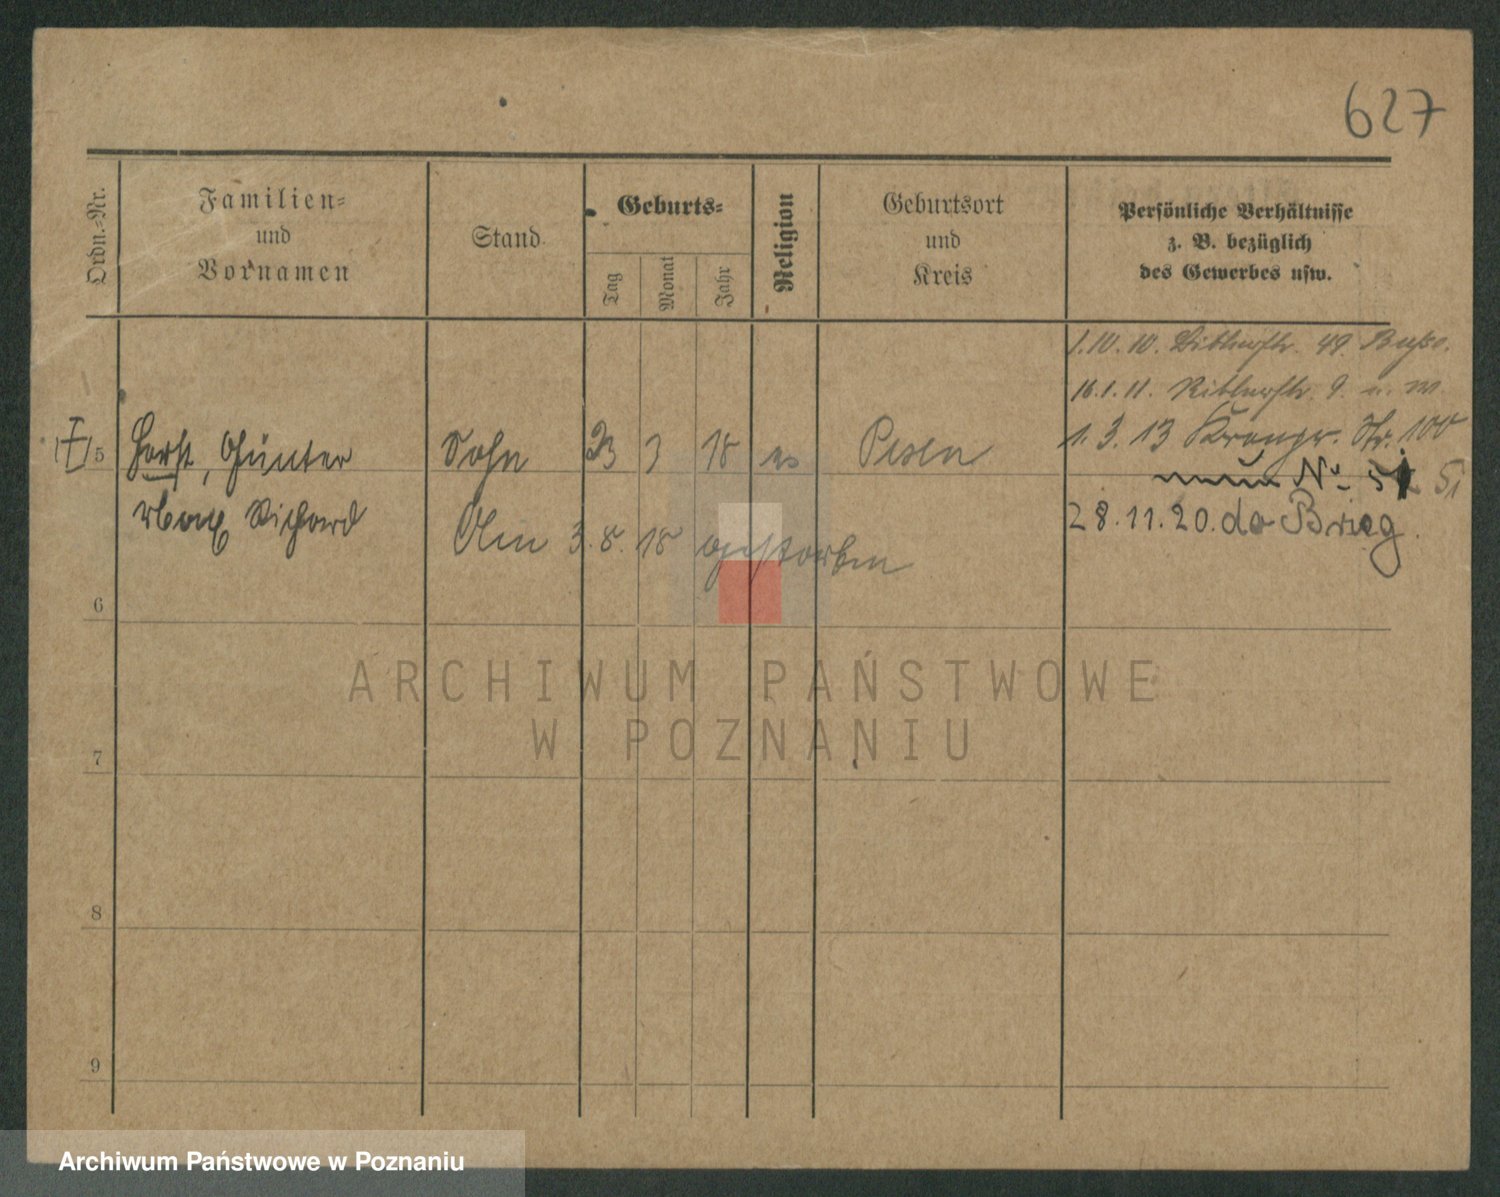 627
Ordn.-Nr.
Familien-
und
Vornamen
Stand
Geburts-
Tag
Monat
Jahr
Religion
Geburtsort
und
Kreis
Persönliche Verhältnisse
z. B. bezüglich
des Gewerbes usw.
1.10.10. 49.
16.1.11. 9.
1.3.13 Str. 100
5 Horst, Günter Sohn 23 3 18 Posen
No 51
Max Richard
28.11.20. do Brieg.
Am 3.8.18 gestorben
6
7
8
9
ARCHIWUM PAŃSTWOWE
W POZNANIU
Archiwum Państwowe w Poznaniu